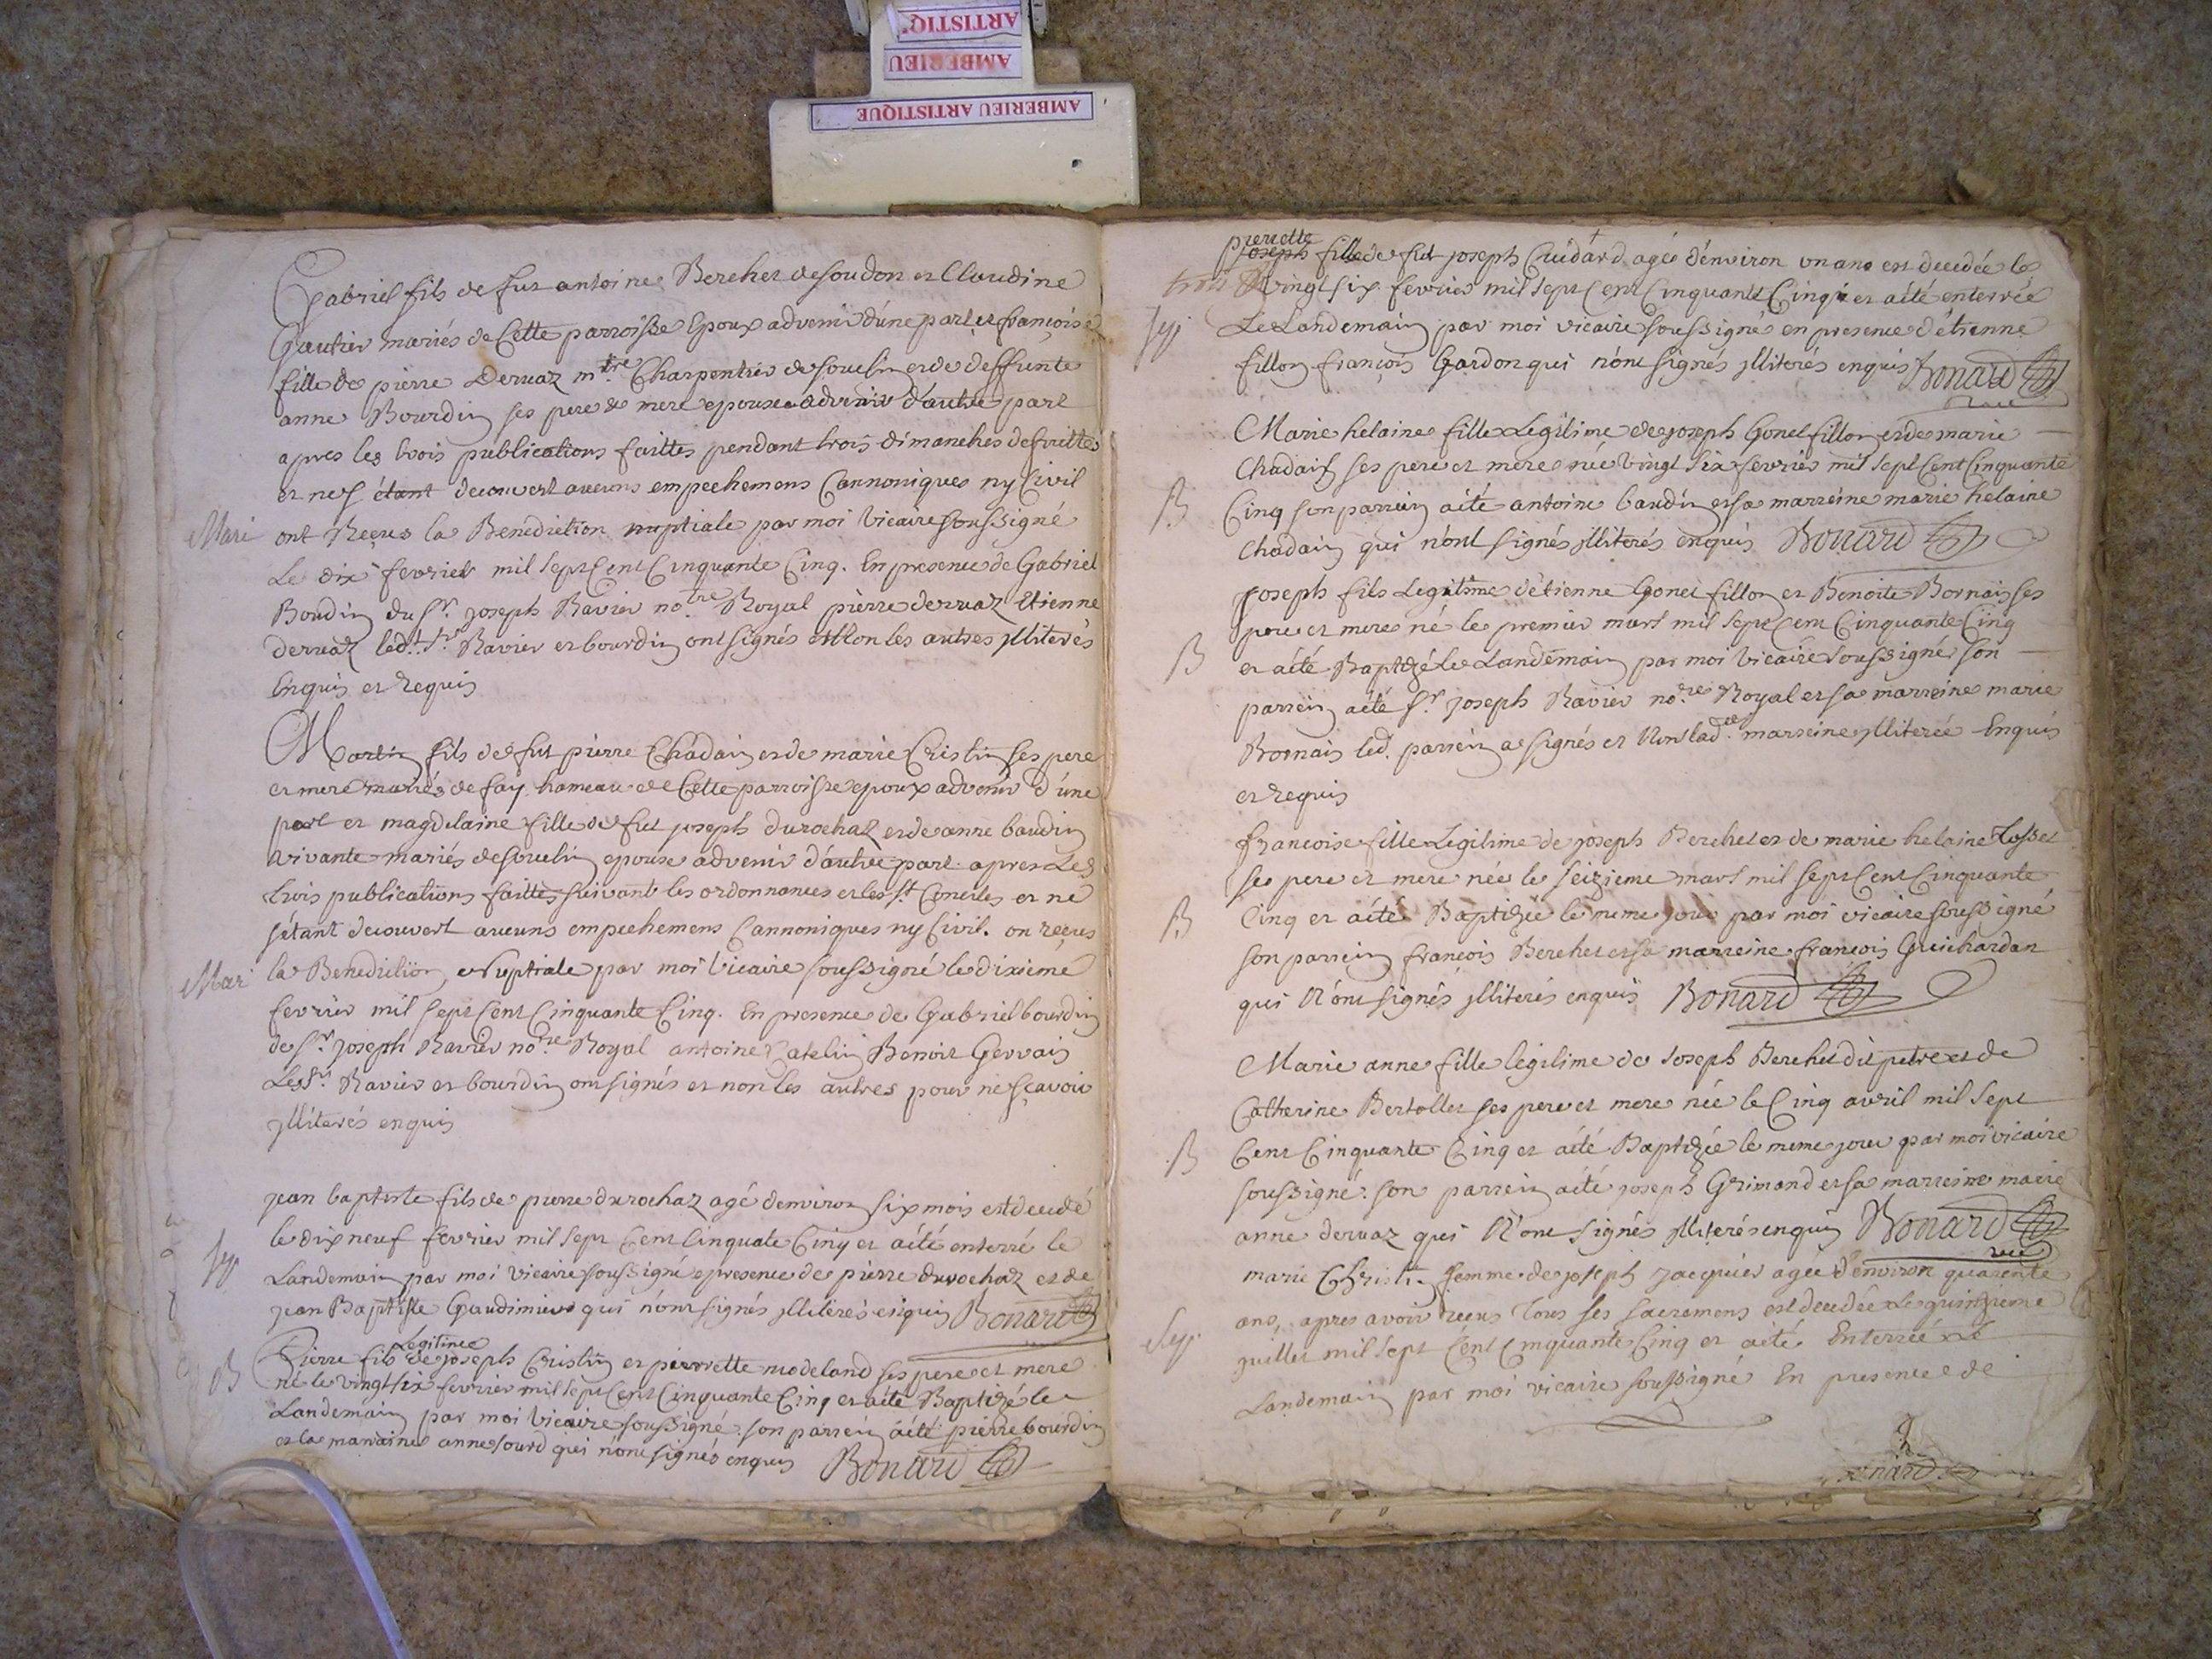 ARTISTIQ'
AMBERIEU
AMBERIEU ARTISTIQUE
Gabriel fils de fut antoine Berchet de soudon et Claudine
Gautier mariés de Cette parroisse Epoux advenir d'úne part et françoise
fille de pierre Dervaz mtre Charpentier de soucLin et de deffunte
anne Bourdin ses pere & mere epouse advenir d'autre part
apres les trois publications faittes pendant trois dimanches de suittes
et ne s'étant decouvert aucuns empechemens Cannoniques ny Civil
Mari
ont Reçus la Benediction nuptiale par moi Vicaire soussigné
Le dix fevrier mil sept Cent Cinquante Cinq. En presence de Gabriel
Boudin du Sr. joseph Ravier notre Royal pierre dervaz Etienne
dervaz led. Sr. Ravier et bourdin ont signés et Non les autres jlliterés
Enquis et Requis
Martin fils de fut pierre Chadain et de marie Cristin ses pere
et mere mariés de fay hameau de Cette parroisse epoux advenir d'úne
part et magdelaine fille de fut joseph durochaz et de anne baudin
vivante mariés de souclin epouse advenir d'autre part apres Les
trois publications faittes suivant les ordonnances et les St. Conciles et ne
s'étant decouvert aucuns empechemens Cannoniques ny Civil. on reçus
Mar
la Benediction Nuptiale par moi Vicaire soussigné le dixieme
fevrier mil sept Cent Cinquante Cinq. En presence de Gabriel bourdin
de Sr. joseph Ravier notre Royal antoine Catelin Benoit Gervais
Les Srs Ravier et bourdin ont signés et non les autres pour ne sçavoir
jlliterés enquis
jean baptiste fils de pierre durochaz agé d'environ six mois est decedé
Sep.
le dix neuf fevrier mil sept Cent Cinquate Cinq et aété enterré le
Landemain par moi Vicaire soussigné epresence de pierre durochaz et de
jean Baptiste Gaudimier qui n'ont signés jlliterés enquis Bonard
Legitime
B
Pierre fils de joseph Cristin et pierrette modeland ses pere et mere
né le vingt six fevrier mil sept Cent Cinquante Cinq et aété Baptizé le
Landemain par moi Vicaire soussigné son parrein aété pierre bourdin
et la marraine anne sourd qui n'ont signés enquis Bonard
pierrette
joseph fille de fut joseph Cuidard agée d'environ un ans est decedée le
vingt six fevrier mil sept Cent Cinquante Cinq et aété enterrée
Sep.
Le Landemain par moi vicaire soussigné en presence d'étienne
fillon françois Gardon qui n'ont signés jlliterés enquis Bonard
vice
Marie helaine fille Legitime de joseph Gonet fillon et de marie
Chadain ses pere et mere née vingt six fevrier mil sept Cent Cinquante
B
Cinq son parrein aété antoine baudin et sa marreine marie helaine
Chadain qui n'ont signés jlliterés enquis Bonard
joseph fils Legitime d'étienne Gonet fillon et Benoite Bornais ses
pere et mere né le premier mars mil sept Cent Cinquante Cinq
B
et aété Baptizé Le Landemain par moi Vicaire soussigné son
parrein aété Sr. joseph Ravier nore Royal et sa marreine marie
Bornais led. parrein a signés et Non lad. marreine jlliterée Enquis
et Requis
francoise fille Legitime de joseph Berchet et de marie helaine
ses pere et mere née le seizieme mars mil sept Cent Cinquante
B
Cinq et aété Baptizée le meme jour par moi vicaire soussigné
son parrein francois Berchet et sa marreine francois Guichardan
qui N'ont signés jlliterés enquis Bonard
Marie anne fille legitime de Joseph Berchet dit petre et de
Catherine Bertollet ses pere et mere née le Cinq avril mil sept
B
Cent Cinquante Cinq et aété Baptizée le meme jour par moi vicaire
soussigné. son parrein aété joseph Grimand et sa marreine marie
anne dervaz qui N'ont signés jlliterés enquis Bonard
vice
marie Christin femme de joseph jacquier agée d'environ quarente
ans, apres avoir reçus tous ses sacremens est decedée Le quinzieme
Sep.
juillet mil sept Cent Cinquante Cinq et aété Enterrée le
Landemain par moi vicaire soussigné En presence de